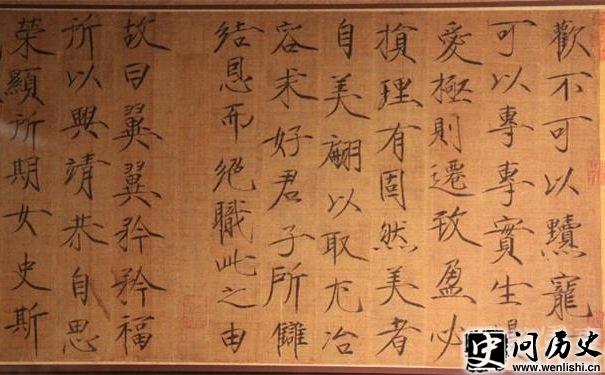 歡不可以黷寵
可以專專實生
愛極則遷致盈必
損理有固然美者
自美翩以取尤冶
容求好君子所讎
結恩而絕職此之由
故曰翼翼矜矜福
所以興靖恭自思
榮顯所期女史斯
史问历史
www.wenlishi.cn